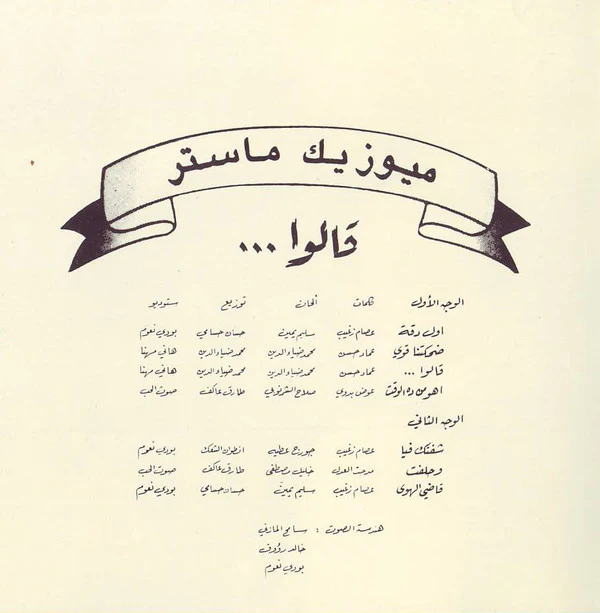 ميوزيك ماستر
قالوا ...
الوجه الأول كلمات ألحان توزيع ستوديو
اول دقة عصام زغيب سليم يمين حسان حسامي بودي نعوم
ضحكتنا قوي عماد حسن محمد ضياء الدين محمد ضياء الدين هاني مهنا
قالوا ... عماد حسن محمد ضياء الدين محمد ضياء الدين هاني مهنا
اهو من ده الوقت عوض بدوي صلاح الشرنوبي طارق عاكف صوت الحب
الوجه الثاني
شفتك فيا عصام زغيب جورج عطيه انطوان الشعك بودي نعوم
وحلفت مدحت العدل خليل مصطفى طارق عاكف صوت الحب
قاضي الهوى عصام زغيب سليم يمين حسان حسامي بودي نعوم
هندسة الصوت : سامح المازني
خالد رؤوف
بودي نعوم